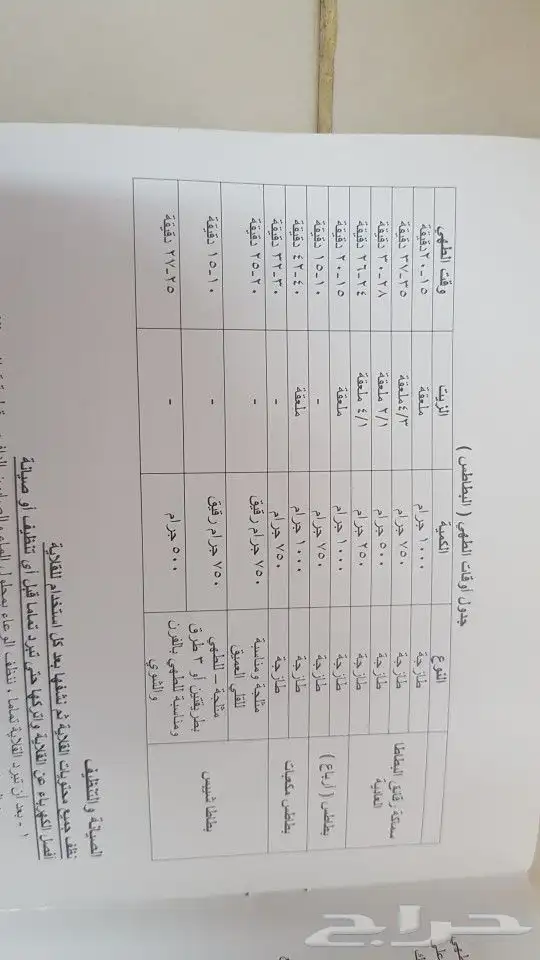 جدول أوقات الطهي ( البطاطس )
النوع الكمية الزيت وقت الطهي
سماكة رقائق البطاطا العادية طازجة ١٠٠٠ جرام ملعقة ١٥-٢٠ دقيقة
طازجة ٧٥٠ جرام ٤/٣ ملعقة ٣٥-٣٧ دقيقة
طازجة ٥٠٠ جرام ٢/١ ملعقة ٢٨-٣٠ دقيقة
طازجة ٢٥٠ جرام ٤/١ ملعقة ٢٤-٢٦ دقيقة
بطاطس ( أرباع ) طازجة ١٠٠٠ جرام ملعقة ١٥-٢٠ دقيقة
طازجة ٧٥٠ جرام - ١٠-١٥ دقيقة
بطاطس مكعبات طازجة ١٠٠٠ جرام ملعقة ٤٠-٤٢ دقيقة
طازجة ٧٥٠ جرام - ٣٠-٣٢ دقيقة
بطاطا شيبس مثلجة ومناسبة للقلي العميق ٧٥٠ جرام رقيق - ٢٠-٢٥ دقيقة
مثلجة – للطهي بطريقتين أو ٣ طرق ومناسبة للطهي بالفرن والشوي ٧٥٠ جرام رقيق - ١٠-١٥ دقيقة
٥٠٠ جرام - ٢٥-٢٧ دقيقة
الصيانة والتنظيف
نظف جميع محتويات القلاية ثم نشفها بعد كل استخدام للقلاية
أفصل الكهرباء عن القلاية واتركها حتى تبرد تماما قبل أي تنظيف أو صيانة
١ - بعد أن تبرد القلاية تماما ، ننظف الوعاء بمحلول الماء والصابون
حراج